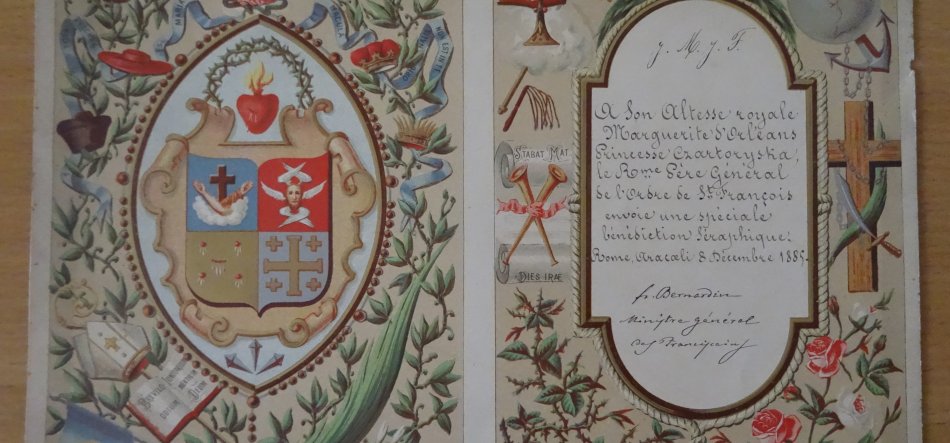 MARIA
J. M. J. F.
A Son Altesse royale
Marguerite d'Orléans
Princesse Czartoryska,
le Rme Père Général
de l'Ordre de St François
envoie une spéciale
bénédiction Séraphique:
Rome, Aracœli 8 Décembre 1885.
fr. Bernardin
Ministre général
des Franciscains
STABAT MAT
DIES IRÆ